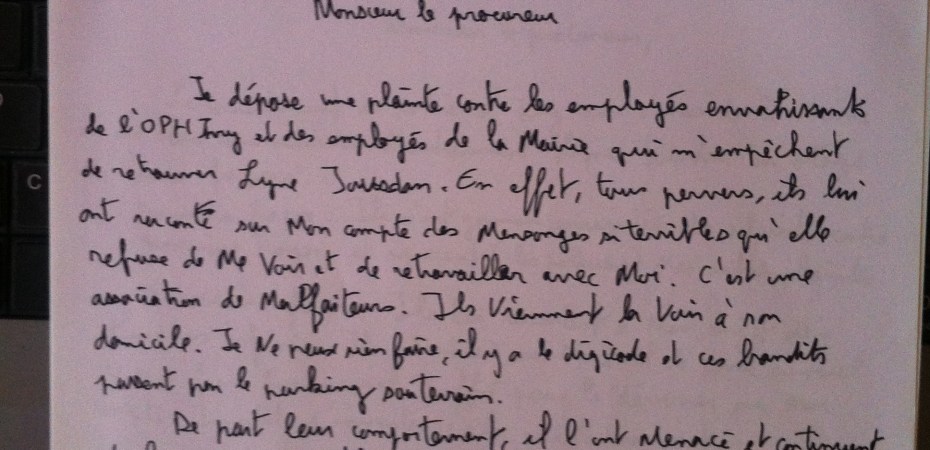 Monsieur le procureur
Je dépose une plainte contre les employés envahissants
de l'OPH Ivry et des employés de la Mairie qui m'empêchent
de retrouver Lyne Jousodan. En effet, tous pervers, ils lui
ont raconté sur Mon compte des Mensonges si terribles qu'elle
refuse de Me Voir et de retravailler avec Moi. C'est une
association de Malfaiteurs. Ils Viennent la Voir à son
domicile. Je Ne peux rien faire, il y a le digicode et ces bandits
passent par le parking souterrain.
De part leur comportement, il l'ont Menacé et continuent
C